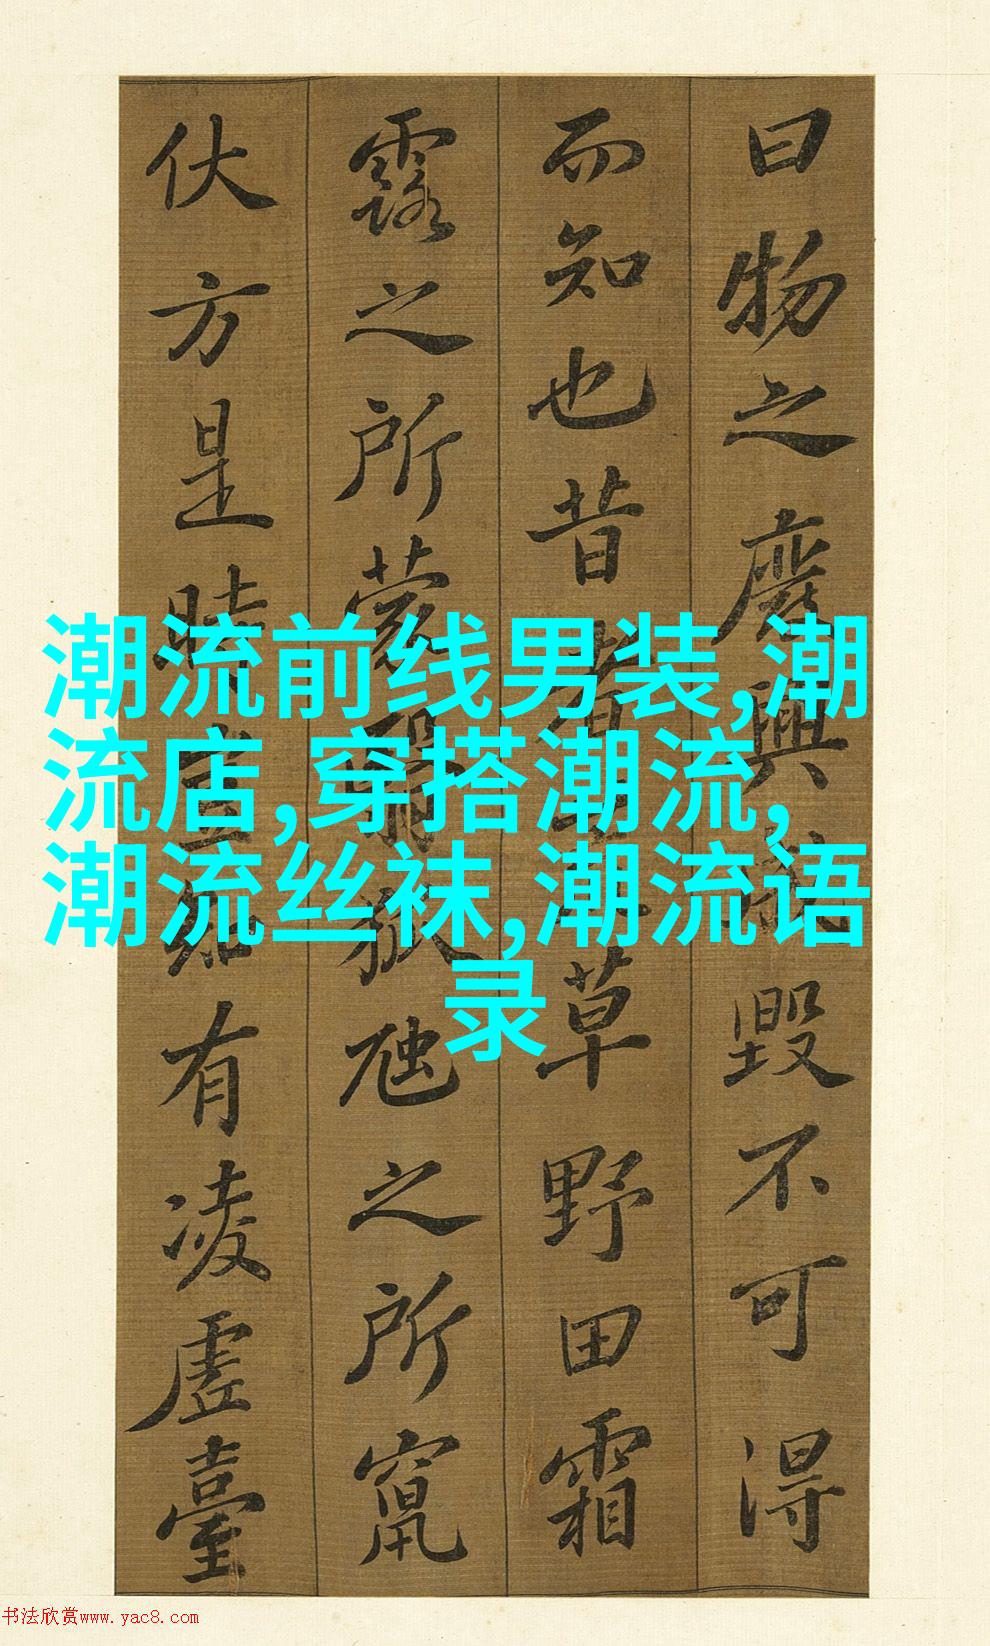 曰物之廢興毀不可得
而知也昔者草野田霜
露之所蒙翳狐虺之所竄
伏方是時豈知有凌虛臺
潮流前线男装,潮
流店,穿搭潮流,
潮流丝袜,潮流语
录
书法欣赏www.yac8.com